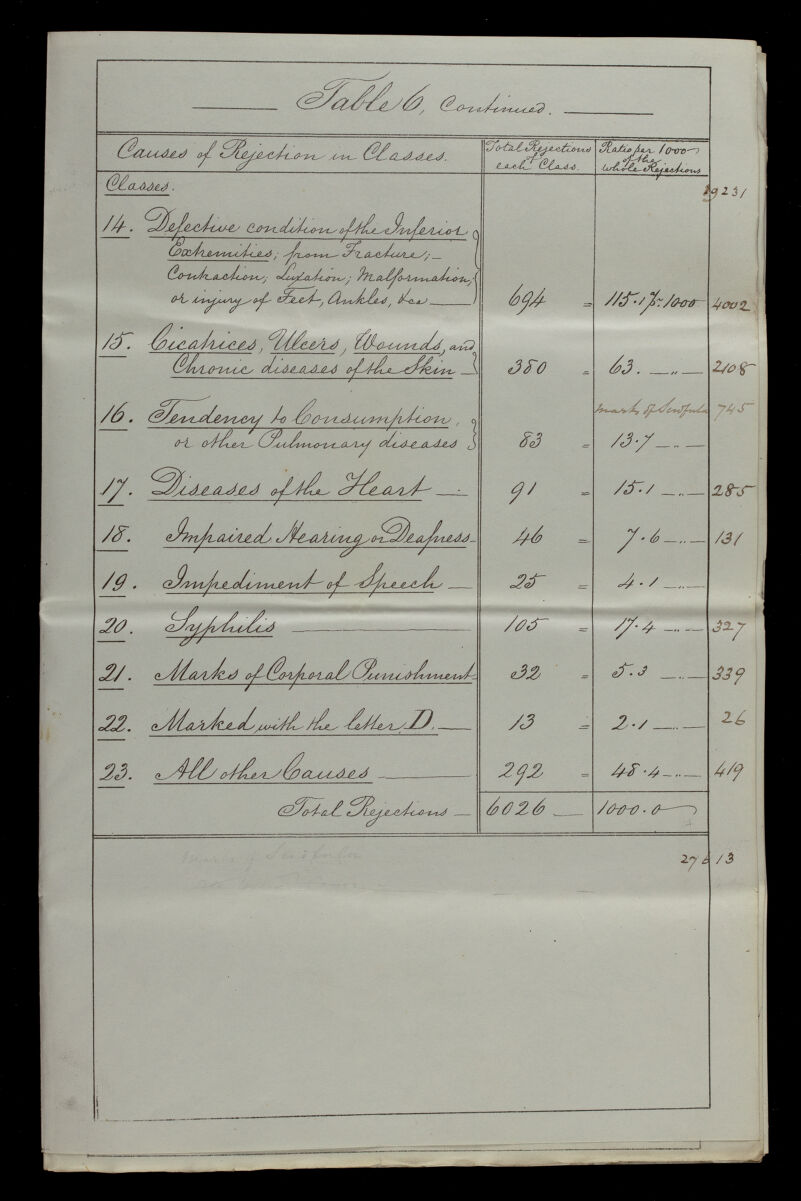 Table 6, continued.
Causes of Rejection in Classes. Total Rejections of each Class. Ratio per 1000 of the whole Rejections
Classes. 19231
14. Defective condition of the Inferior
Extremities; from Fracture;-
Contraction; Luxation; Malformation;
or injury of Feet, Ankles, &ca — 694 = 115.1 pr. 1000 4002
15. Cicatrices, Ulcers, Wounds, and
Chronic diseases of the Skin — 380 = 63. — " — 2108
marks of Scrofula 745
16. Tendency to Consumption,
or other Pulmonary diseases 83 = 13.7 — " —
17. Diseases of the Heart — 91 = 15.1 — " — 285
18. Impaired Hearing or Deafness — 46 = 7.6 — " — 131
19. Impediment of Speech — 25 = 4.1 — " —
20. Syphilis — 105 = 17.4 — " — 327
21. Marks of Corporal Punishment — 32 = 5.3 — " — 339
22. Marked with the letter D. — 13 = 2.1 — " — 26
23. All other Causes — 292 = 48.4 — " — 419
Total Rejections — 6026 — 1000.0
Marks of Scrofula 27613